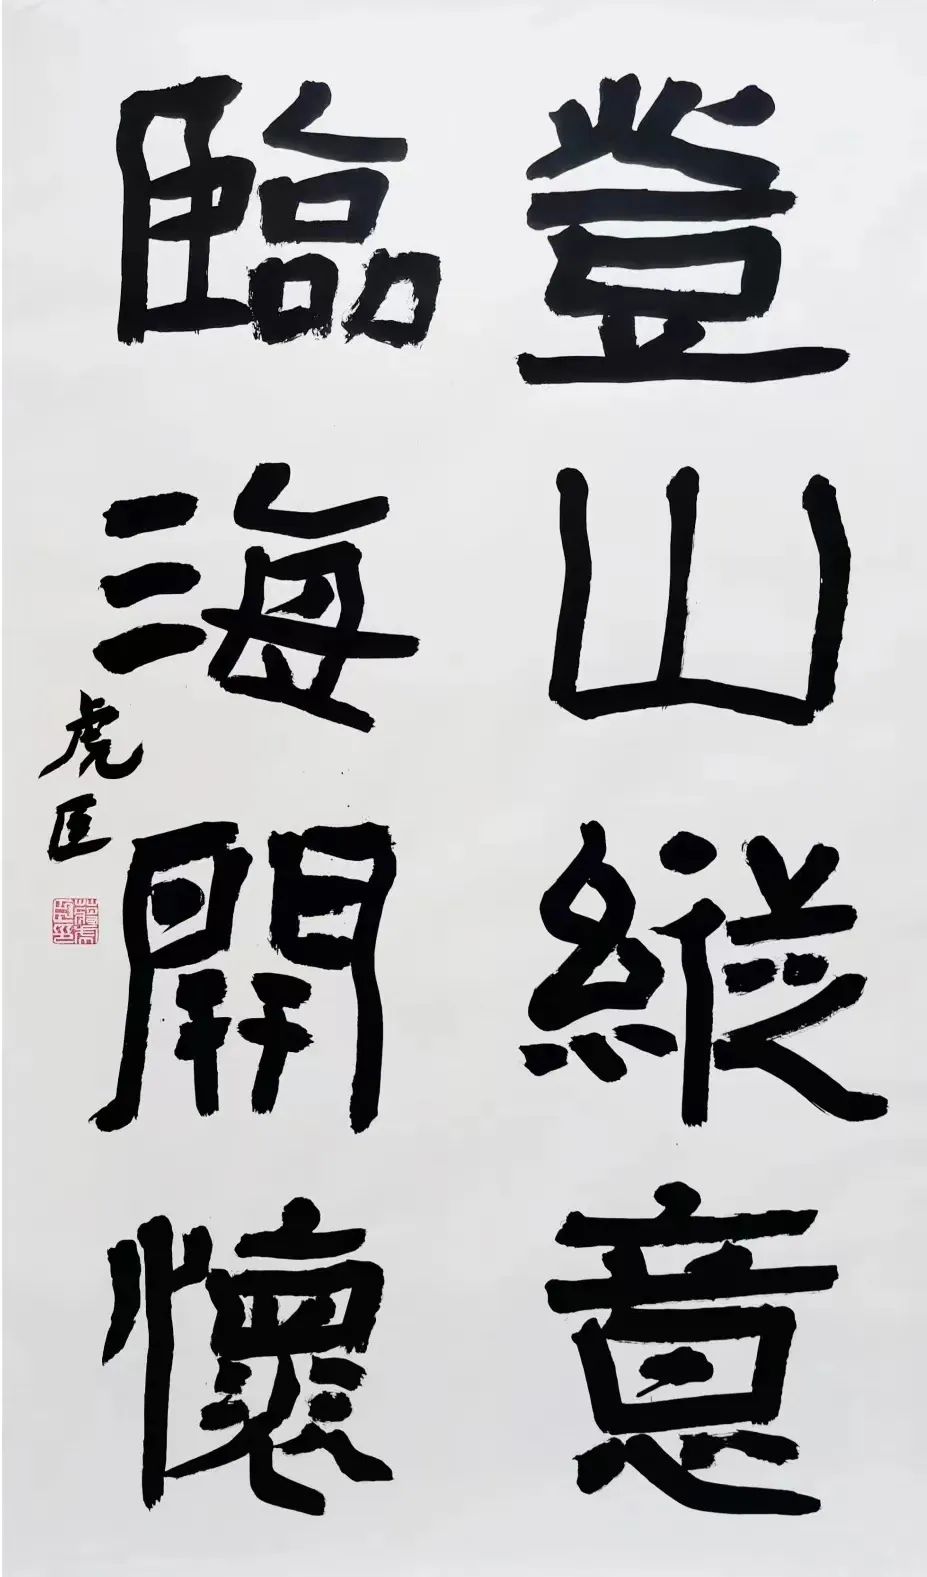 登山縱意
臨海開懷
虎臣